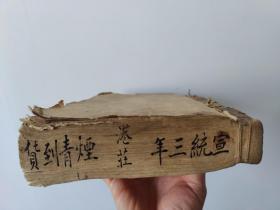 宣統三年
港莊
煙青到貨